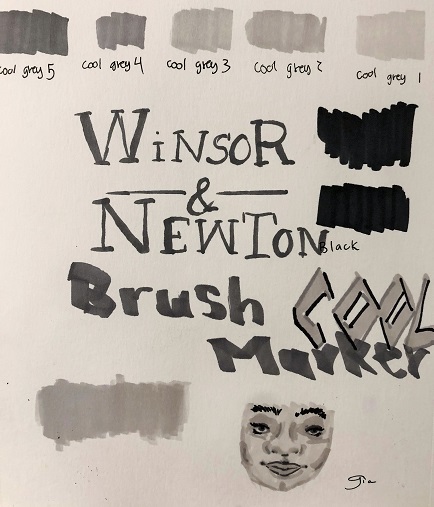 cool grey 5 cool grey 4 cool grey 3 cool grey 2 cool grey 1
WINSOR
&
NEWTON
Black
Brush COOL
Marker
Gia